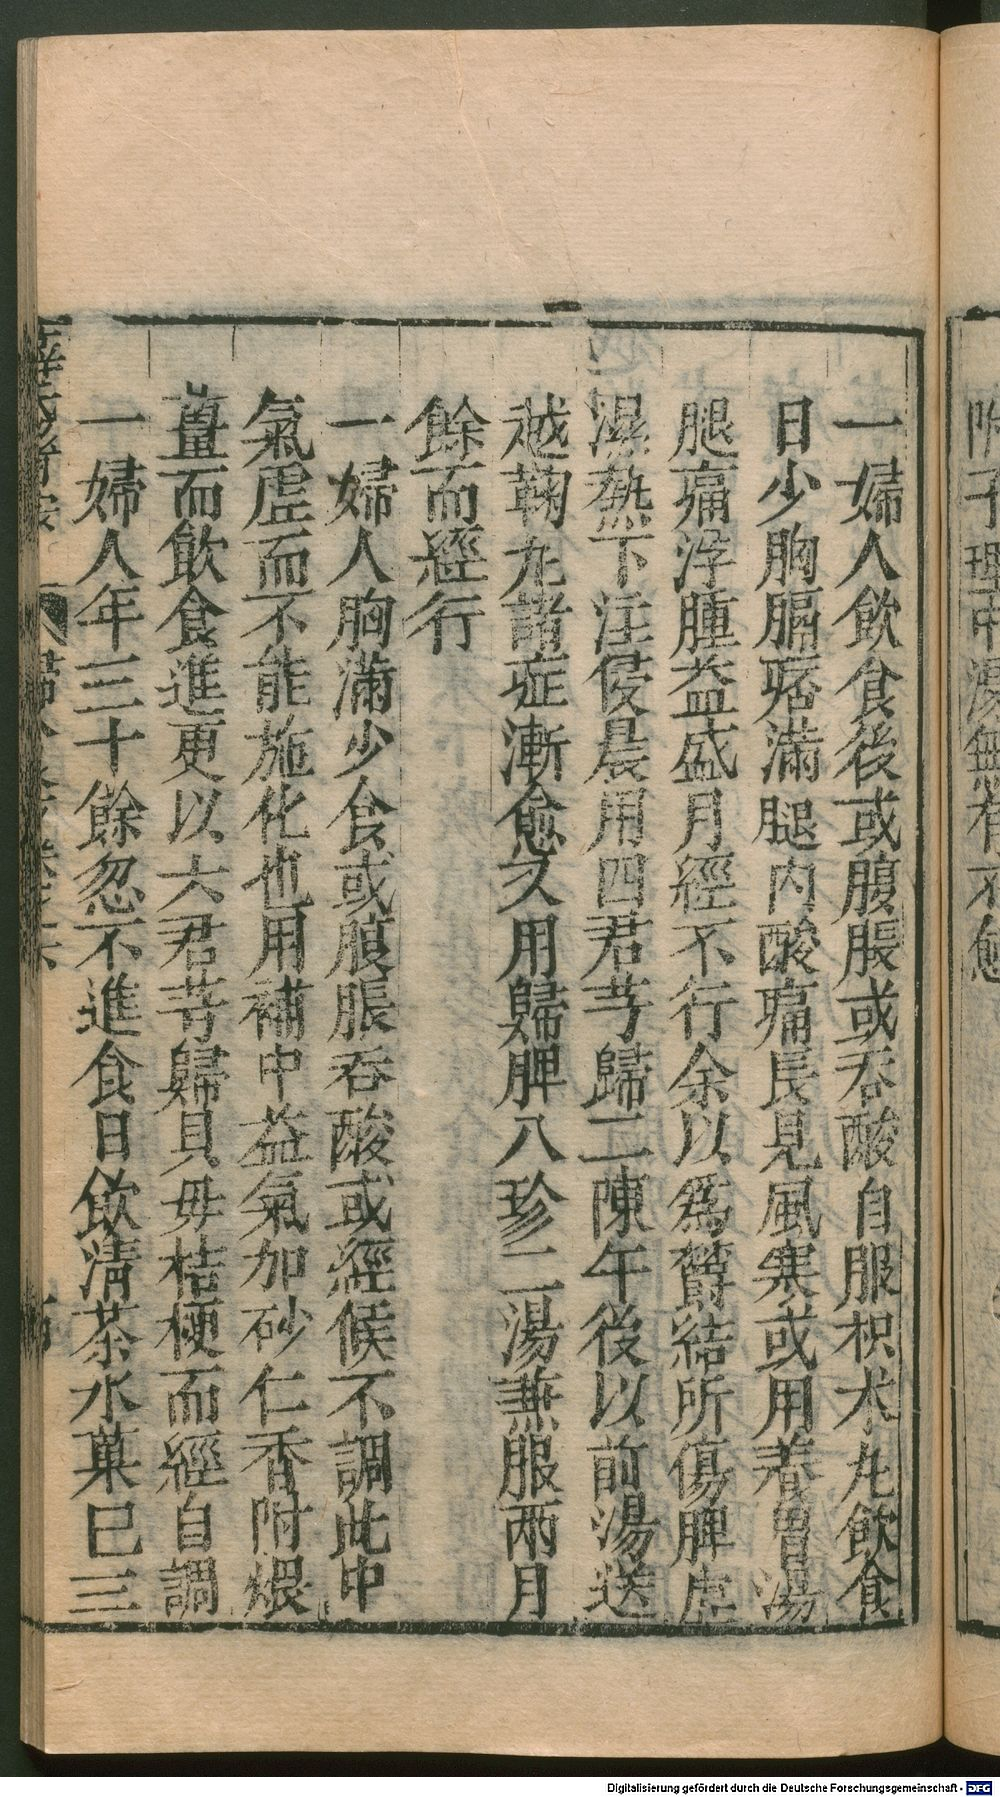 附子理中湯無有不愈
一婦人飲食後或腹脹或吞酸自服枳朮丸飲食
日少胸膈痞滿腿內酸痛長見風寒或用養胃湯
腿痛浮腫益盛月經不行余以為鬱結所傷脾虛
濕熱下注侵晨用四君芎歸二陳午後以前湯送
越鞠丸諸症漸愈又用歸脾八珍二湯兼服兩月
餘而經行
一婦人胸滿少食或腹脹吞酸或經候不調此中
氣虛而不能施化也用補中益氣加砂仁香附煨
薑而飲食進更以六君芎歸貝毋桔梗而經自調
一婦人年三十餘忽不進食日飲清茶水菓已三
薛氏醫按
Digitalisierung gefördert durch die Deutsche Forschungsgemeinschaft - DFG